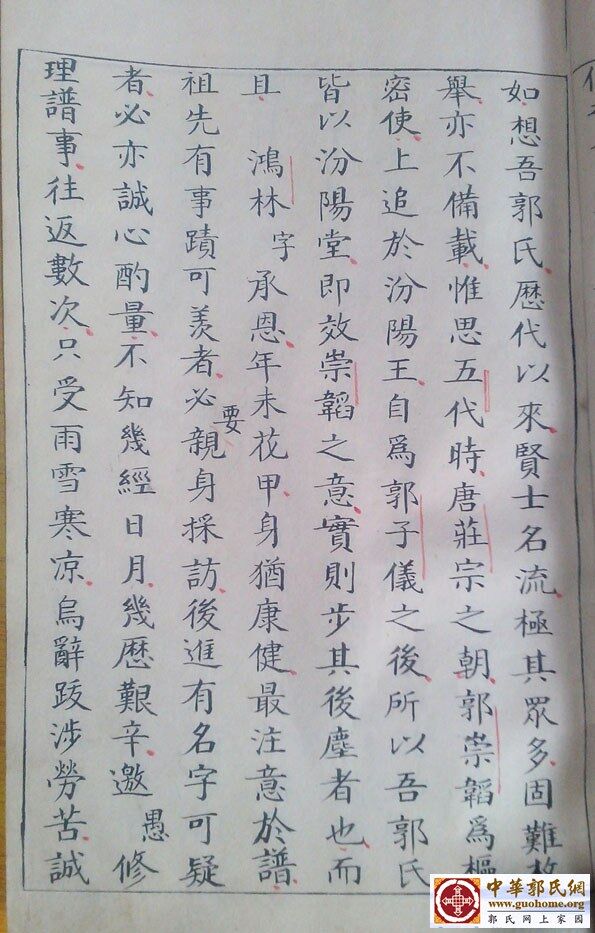 如想吾郭氏歷代以來賢士名流極其眾多固難枚
舉亦不備載惟思五代時唐莊宗之朝郭崇韜爲樞
密使上追於汾陽王自爲郭子儀之後所以吾郭氏
皆以汾陽堂即效崇韜之意實則步其後塵者也而
且 鴻林 字 承恩年未花甲身猶康健最注意於譜
祖先有事蹟可羨者必要親身採訪後進有名字可疑
者必亦誠心酌量不知幾經日月幾歷艱辛邀 愚 修
理譜事往返數次只受雨雪寒凉烏辭跋涉勞苦誠
中華郭氏網
www.guohome.org
郭氏网上家园